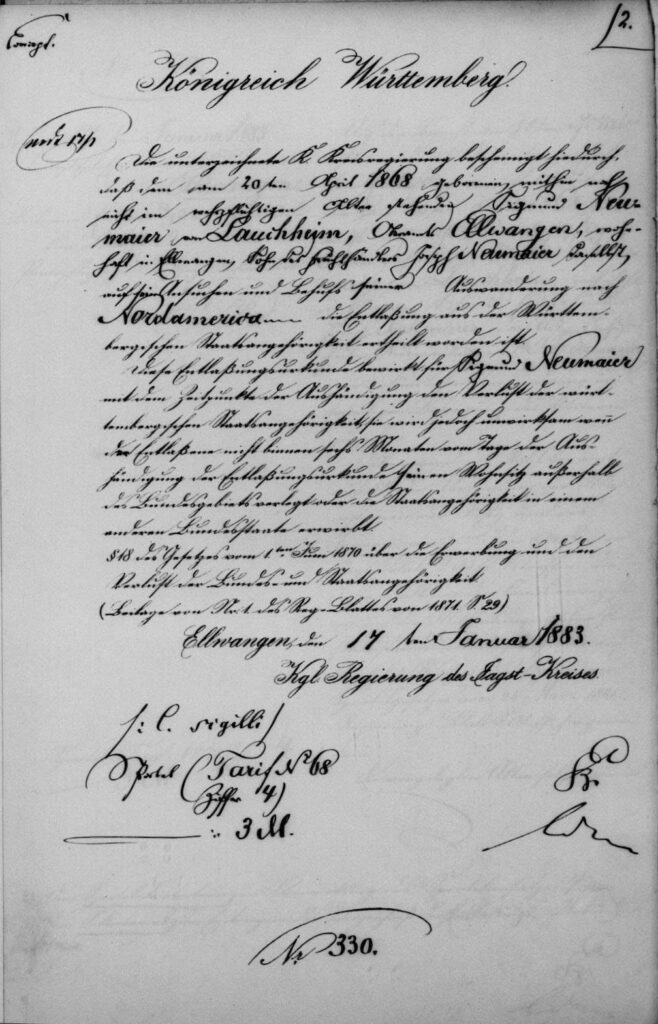 2.
Concept.
Königreich Württemberg.
17/1
Die unterzeichnete K. Kreisregierung bescheinigt hiedurch,
daß dem am 20ten April 1868 geborenen, mithin noch
nicht im wehrpflichtigen Alter stehenden Sigmund Neu-
maier von Lauchheim, Oberamts Ellwangen, wohn-
haft in Ellwangen, Sohn des Joseph Neumaier daselbst,
auf sein Ansuchen und Behufs seiner Auswanderung nach
Nordamerica die Entlaßung aus der Württem-
bergischen Staatsangehörigkeit ertheilt worden ist.
Diese Entlaßungsurkunde bewirkt für Sigmund Neumaier
mit dem Zeitpunkte der Aushändigung den Verlust der würt-
tembergischen Staatsangehörigkeit, sie wird jedoch unwirksam wenn
der Entlaßene nicht binnen sechs Monaten vom Tage der Aus-
händigung der Entlaßungsurkunde seinen Wohnsitz außerhalb
des Bundesgebiets verlegt oder die Staatsangehörigkeit in einem
anderen Bundesstaate erwirbt.
§ 18 des Gesetzes vom 1ten Juni 1870 über die Erwerbung und den
Verlust der Bundes- und Staatsangehörigkeit
(Beilage von No 1. des Reg-Blattes von 1871. S. 29)
Ellwangen, den 17 ten Januar 1883.
Kgl. Regierung des Jagst-Kreises.
/: L. sigilli /
Sportel (Tarif No 68
Ziffer 4)
:. 3 M.
Nr 330.